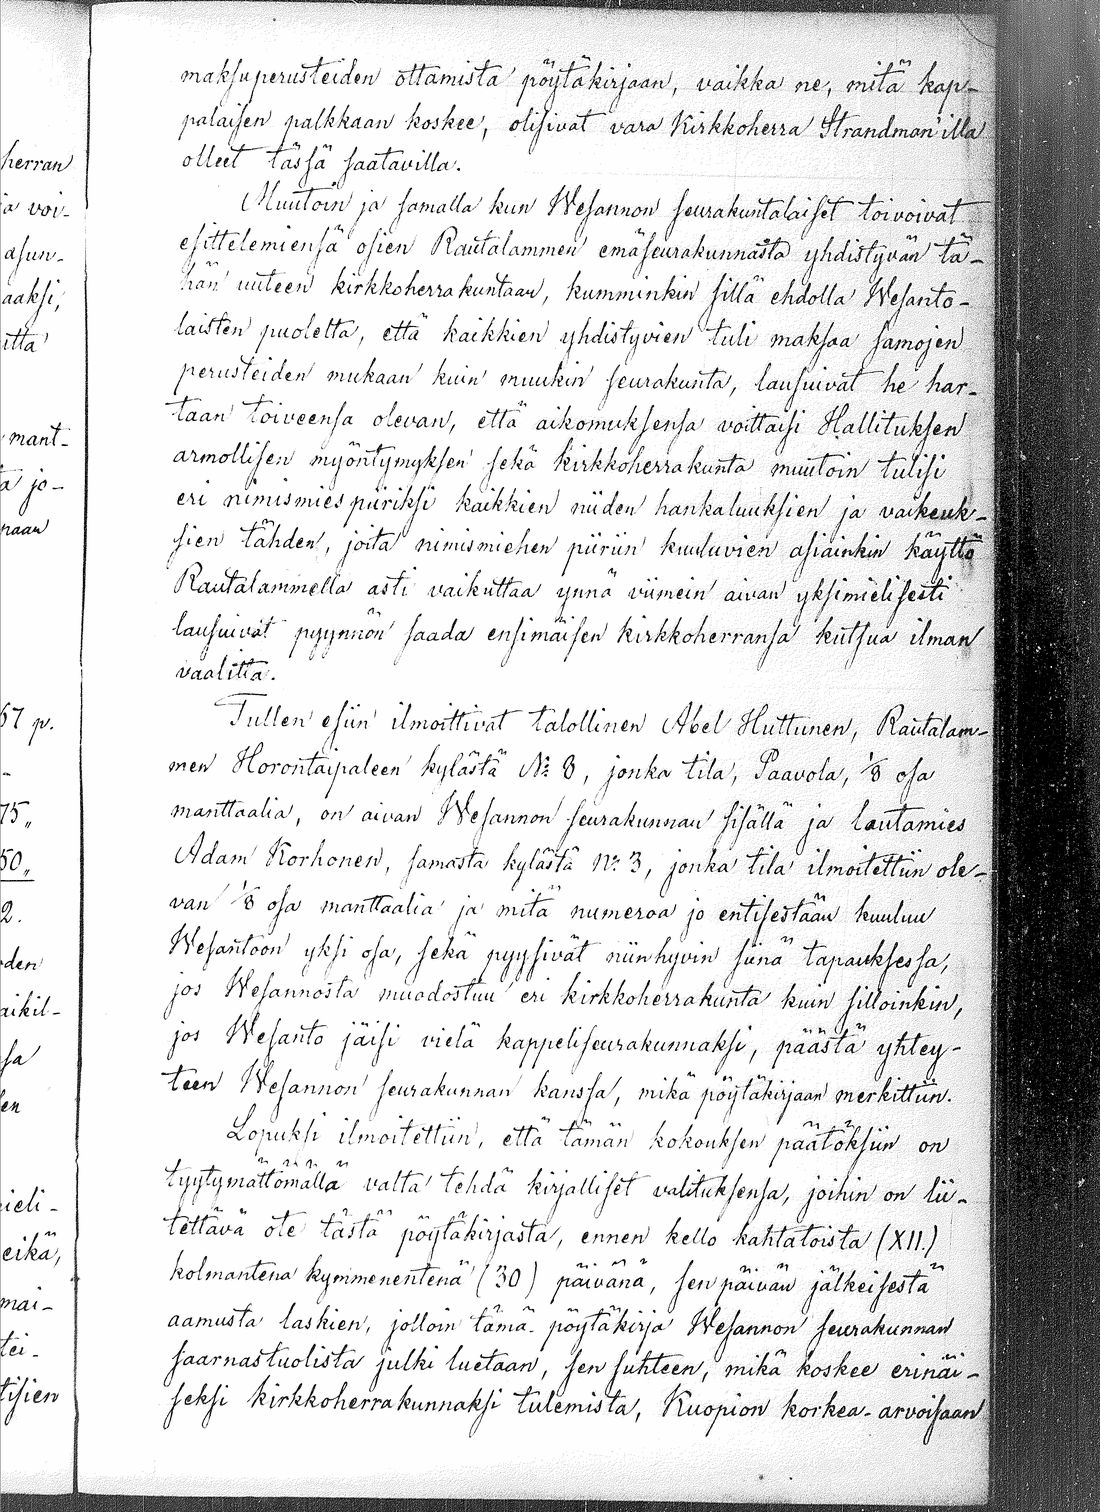 herran
ja voi-
asun-
aaksi,
itta
mant-
ta jo-
naan
57 p.
75 „
50 „
2.
den
aikil-
sa
len
ieli-
eikä,
mai-
tei-
tisien
maksuperusteiden ottamista pöytäkirjaan, vaikka ne, mitä kap-
palaisen palkkaan koskee, olisivat vara Kirkkoherra Strandman'illa
olleet tässä saatavilla.
Muutoin ja samalla kun Wesannon seurakuntalaiset toivoivat
esittelemiensä osien Rautalammen emäseurakunnasta yhdistyvän tä-
hän uuteen kirkkoherrakuntaan, kumminkin sillä ehdolla Wesanto-
laisten puolelta, että kaikkien yhdistyvien tuli maksaa samojen
perusteiden mukaan kuin muukin seurakunta, lausuivat he har-
taan toiveensa olevan, että aikomuksensa voittaisi Hallituksen
armollisen myöntymyksen sekä kirkkoherrakunta muutoin tulisi
eri nimismiespiiriksi kaikkien niiden hankaluuksien ja vaikeuk-
sien tähden, joita nimismiehen piiriin kuuluvien asiainkin käyttö
Rautalammella asti vaikuttaa ynnä viimein aivan yksimielisesti
lausuivat pyynnön saada ensimäisen kirkkoherransa kutsua ilman
vaalitta.
Tullen esiin ilmoittivat talollinen Abel Huttunen, Rautalam-
men Horontaipaleen kylästä No 8, jonka tila, Paavola, 1/8 osa
manttaalia, on aivan Wesannon seurakunnan sisällä ja lautamies
Adam Korhonen, samasta kylästä No 3, jonka tila ilmoitettiin ole-
van 1/8 osa manttaalia ja mitä numeroa jo entisestään kuuluu
Wesantoon yksi osa, sekä pyysivät niinhyvin siinä tapauksessa,
jos Wesannosta muodostuu eri kirkkoherrakunta kuin silloinkin,
jos Wesanto jäisi vielä kappeliseurakunnaksi, päästä yhtey-
teen Wesannon seurakunnan kanssa, mikä pöytäkirjaan merkittiin.
Lopuksi ilmoitettiin, että tämän kokouksen päätöksiin on
tyytymättömällä valta tehdä kirjalliset valituksensa, joihin on lii-
tettävä ote tästä pöytäkirjasta, ennen kello kahtatoista (XII.)
kolmantena kymmenentenä (30) päivänä, sen päivän jälkeisestä
aamusta laskien, jolloin tämä pöytäkirja Wesannon seurakunnan
saarnastuolista julki luetaan, sen suhteen, mikä koskee erinäi-
seksi kirkkoherrakunnaksi tulemista, Kuopion korkea-arvoisaan